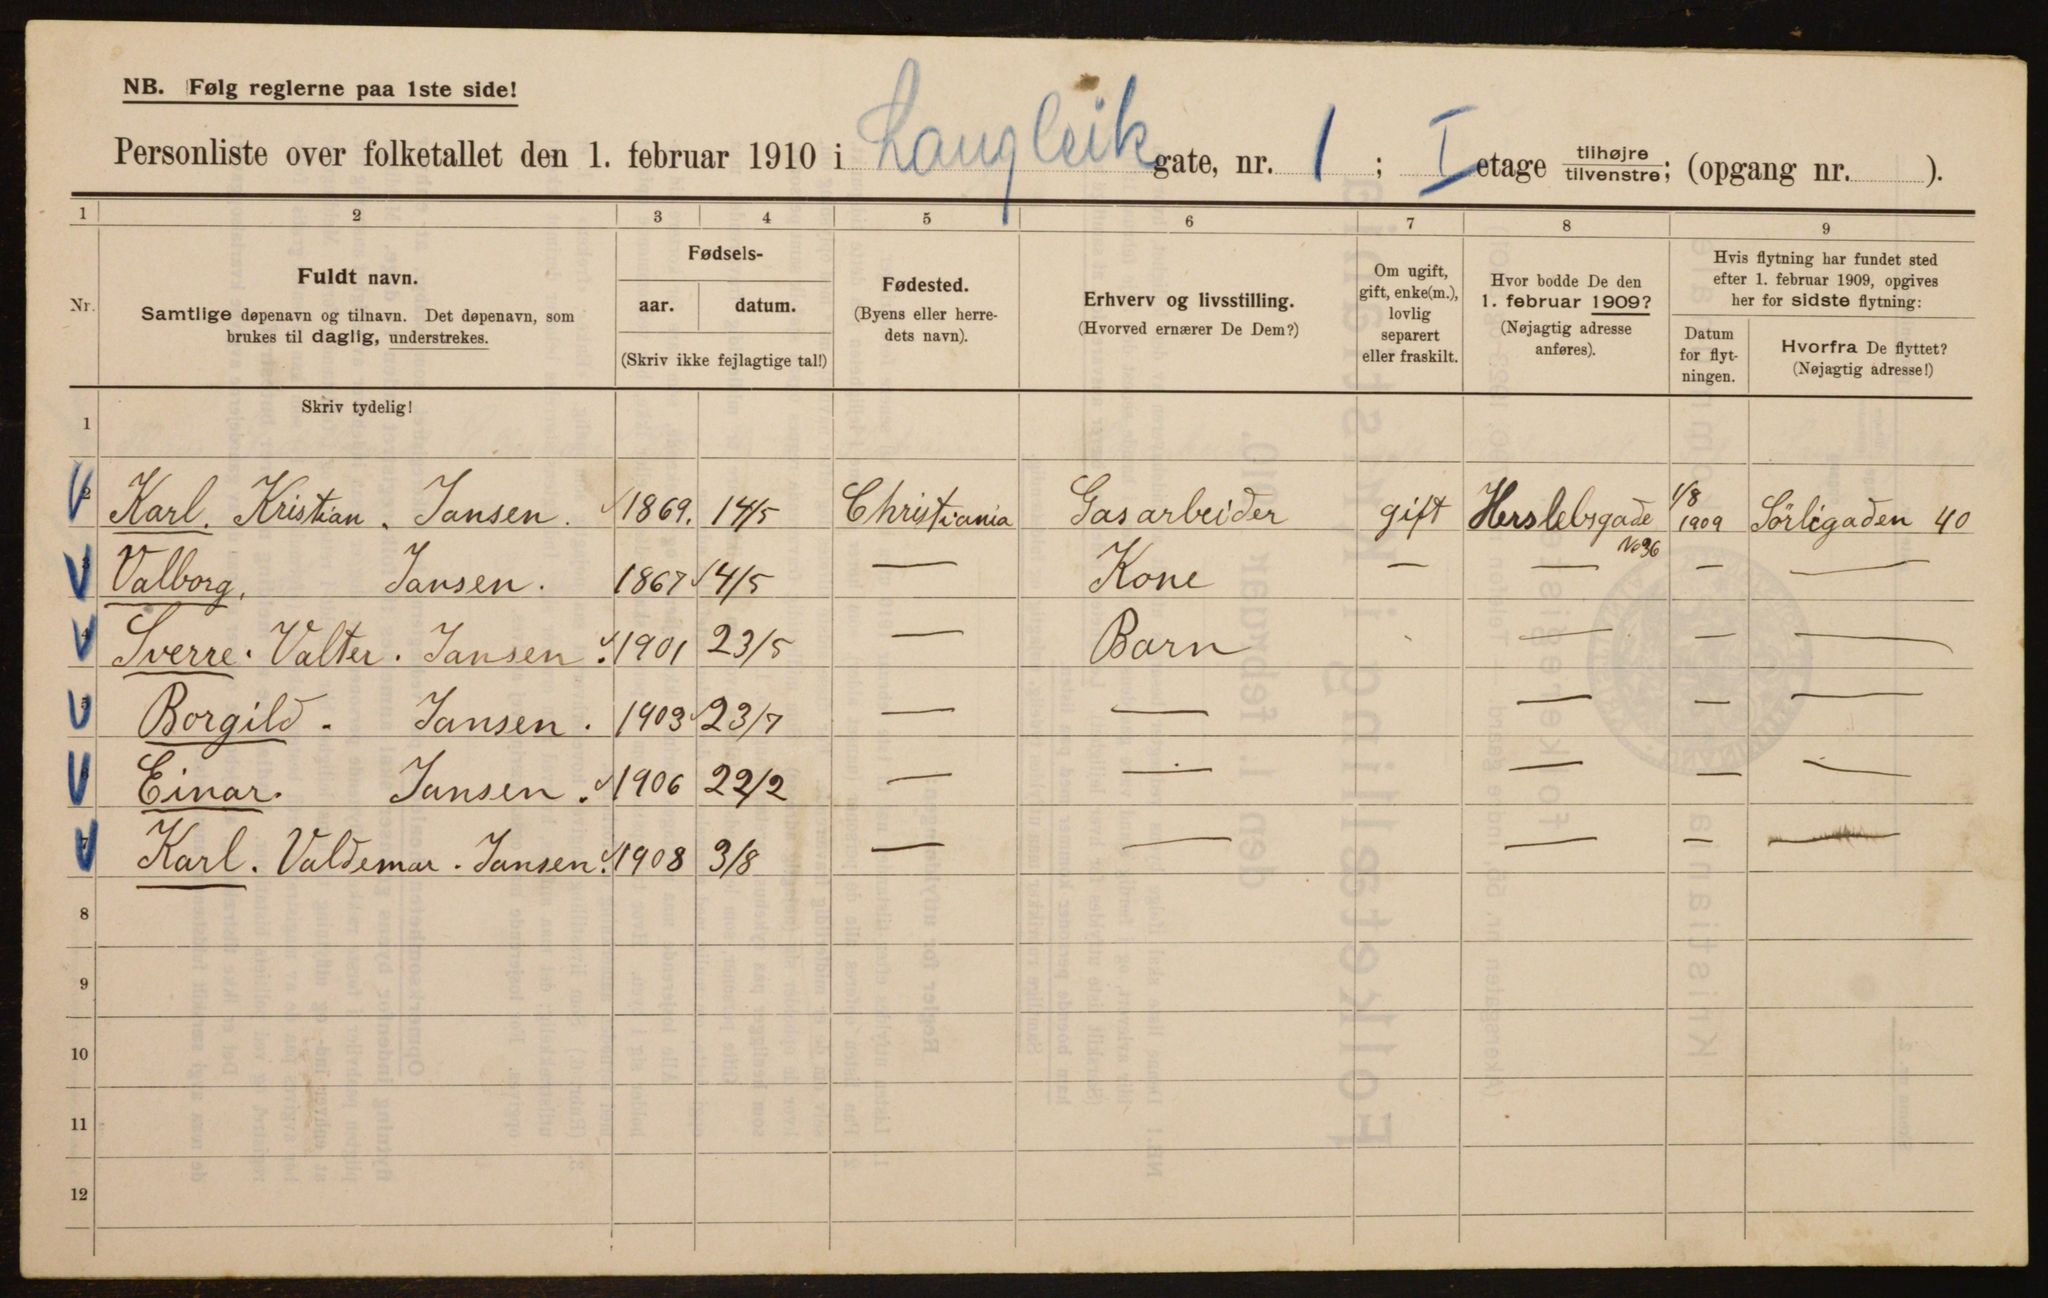 NB. Følg reglerne paa 1ste side!
Personliste over folketallet den 1. februar 1910 i Langleik gate, nr. 1 ; I etage tilhøjre/tilvenstre; (opgang nr. ).
1 2 3 4 5 6 7 8 9
Nr.
Fuldt navn.
Samtlige døpenavn og tilnavn. Det døpenavn, som
brukes til daglig, understrekes.
Fødsels-
aar. datum.
(Skriv ikke fejlagtige tal!)
Fødested.
(Byens eller herre-
dets navn).
Erhverv og livsstilling.
(Hvorved ernærer De Dem?)
Om ugift,
gift, enke(m.),
lovlig
separert
eller fraskilt.
Hvor bodde De den
1. februar 1909?
(Nøjagtig adresse
anføres).
Hvis flytning har fundet sted
efter 1. februar 1909, opgives
her for sidste flytning:
Datum
for flyt-
ningen.
Hvorfra De flyttet?
(Nøjagtig adresse!)
Skriv tydelig!
1
2 Karl. Kristian. Jansen. 1869. 14/5 Christiania Gasarbeider gift Herslebsgade No 36 1/8 1909 Sørligaden 40
3 Valborg. Jansen. 1867 14/5 — Kone — — — —
4 Sverre. Valter. Jansen. 1901 23/5 — Barn — — —
5 Borgild. Jansen. 1903 23/7 — — — — —
6 Einar. Jansen. 1906 22/2 — — — — —
7 Karl. Valdemar. Jansen. 1908 3/8 — — — — —
8
9
10
11
12